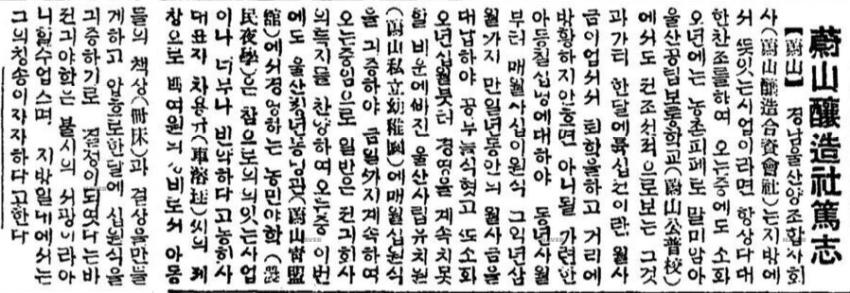 蔚山釀造社篤志
【蔚山】 경남울산양조합자회
사(蔚山釀造合資會社)는지방에
서 뜻잇는사업이라면 항상다대
한찬조를하여 오는중에도 소화
오년에는 농촌피폐로 말미암아
울산공립보통학교(蔚山公普校)
에서도 전조선적으로보는 그것
과가티 한달에륙십전이란 월사
금이업서서 퇴학을하고 거리에
방황하지안흐면 아니될 가련한
아동칠십명에대하야 동년사월
부터 매월사십이원식 그익년삼
월가지 만일년동안의 월사금을
대납하야 공부를식혓고 또소화
오년십월붓터 경영을 계속치못
할 비운에바진 울산사립유치원
(蔚山私立幼稚園)에매월십원식
을 긔증하야 금일까지계속하여
오는중임으로 일반은 전긔회사
의특지를 찬양하여오는중 이번
에도 울산청년동맹관(蔚山靑盟
館)에서경영하는 농민야학(農
民夜學)은 참으로의의잇는사업
이나 너무나 빈약하다고동회사
대표자 차용규(車溶)씨의
창으로 백여원의 경비로서 아동
들의 책상(冊床)과 걸상을만들
게하고 압흐로한달에 십원식을
긔증하기로 결정이되엿다는바
전긔야학는 불시의 서광이라아
니할수업스며 지방일내에서는
그의칭송이자자하다고한다